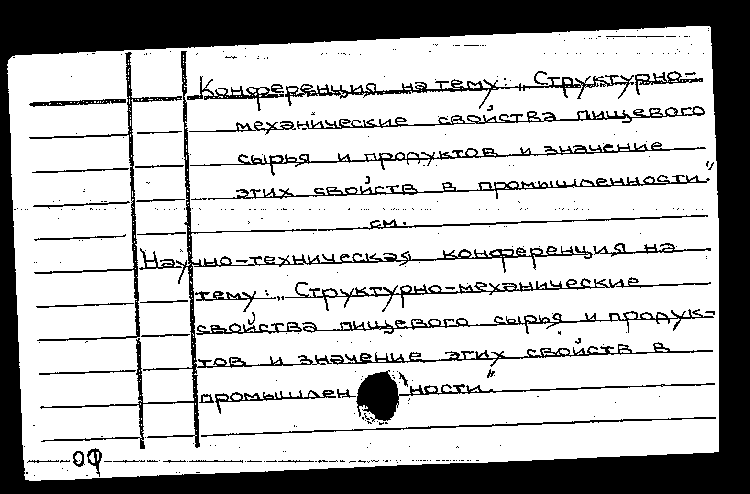 Конференция на тему: „Структурно-
механические свойства пищевого
сырья и продуктов и значение
этих свойств в промышленности."
см.
Научно-техническая конференция на
тему: „Структурно-механические
свойства пищевого сырья и продук-
тов и значение этих свойств в
промышленности."
оф